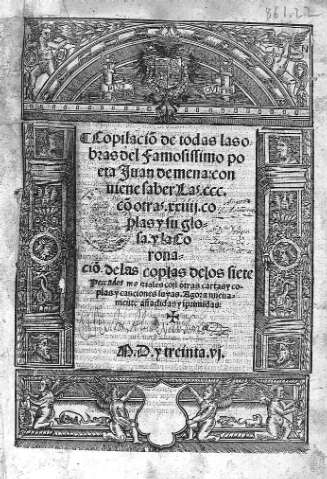 861.22
Copilació de todas las o
bras del famosissimo po
eta Juan de mena: con
uiene saber Las .ccc.
cõ otras .xxiiij. co
plas y su glo
sa. y la Co
rona-
ció. de las coplas delos siete
Pecados mortales con otras cartas y co
plas y canciones suyas. Agora nueua
mente añadidas y imprimidas.
M.D. y treinta. vj.